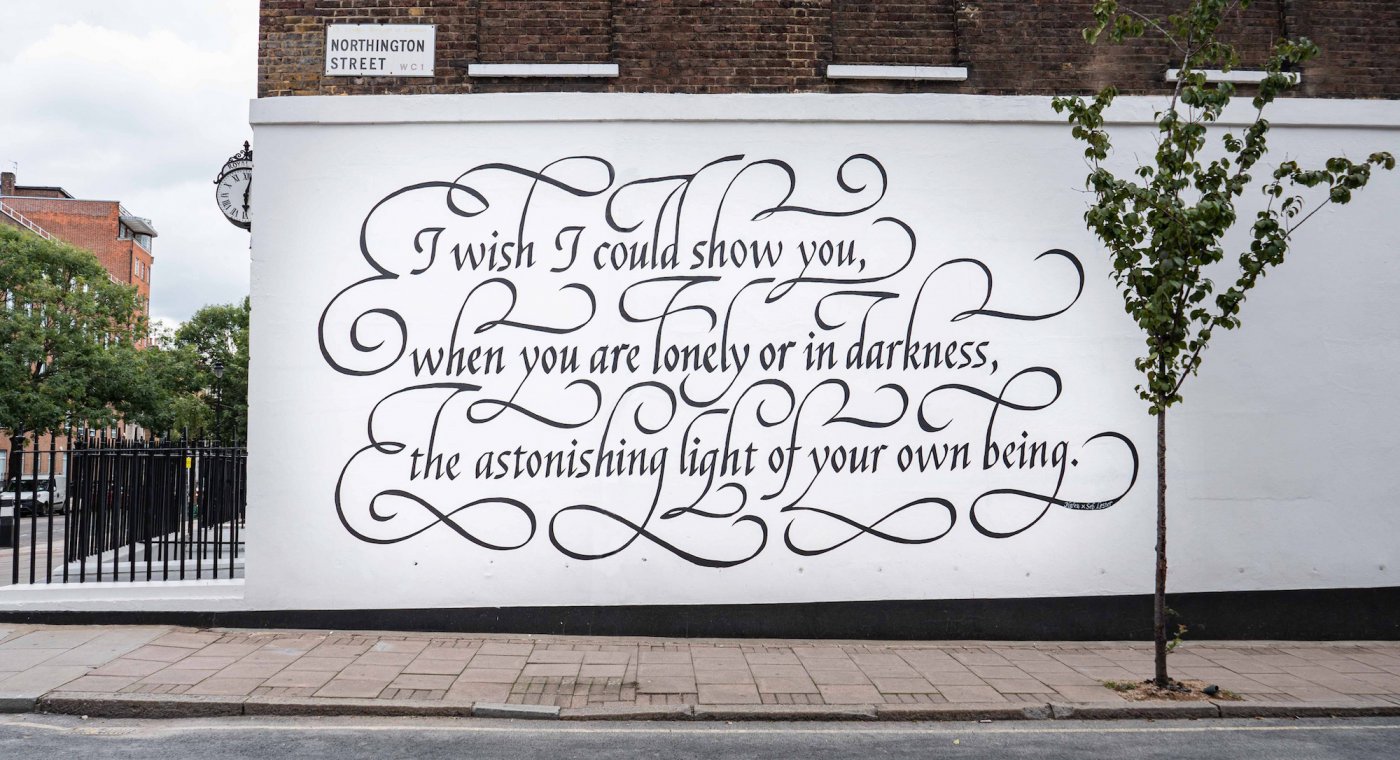 NORTHINGTON
STREET WC1
I wish I could show you,
when you are lonely or in darkness,
the astonishing light of your own being.